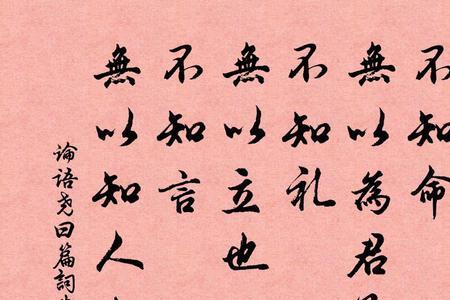 不知命
無以為君
不知礼
無以立也
不知言
無以知人
论语尧曰篇詞